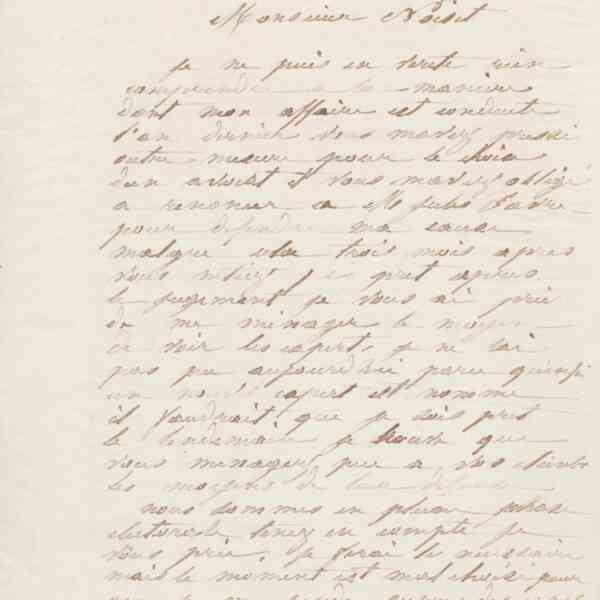 Monsieur Noiset
je ne puis en verité rien
comprendre a la maniere
dont mon affaire est conduite
l'an dernier vous mavez pressé
outre mesure pour le choix
dun avocat et vous mavez obligé
a renoncer a Me Jules Favre
pour defendre ma cause
malgre cela trois mois apres
vous netiez pret apres
le jugement je vous ai prié
de me ménager le moyen
de voir les experts je ne lai
pas pu aujourdhui parce quainsi
un nouvel expert est nommé
il faudrait que je sois pret
le lendemain je trouve que
vous menagez peu a vos clients
les moyens de leur defense
nous sommes en pleine phase
electorale tenez en compte je
vous prie. je ferai le necessaire
mais le moment est mal choisi pour